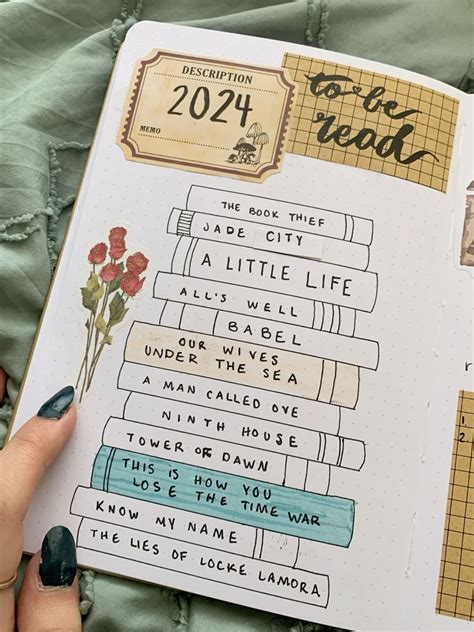 DESCRIPTION
2024
MEMO
to be
read
THE BOOK THIEF
JADE CITY
A LITTLE LIFE
ALL'S WELL
BABEL
OUR WIVES
UNDER THE SEA
A MAN CALLED OVE
NINTH HOUSE
TOWER OF DAWN
THIS IS HOW YOU
LOSE THE TIME WAR
KNOW MY NAME
THE LIES OF LOCKE LAMORA
1
2